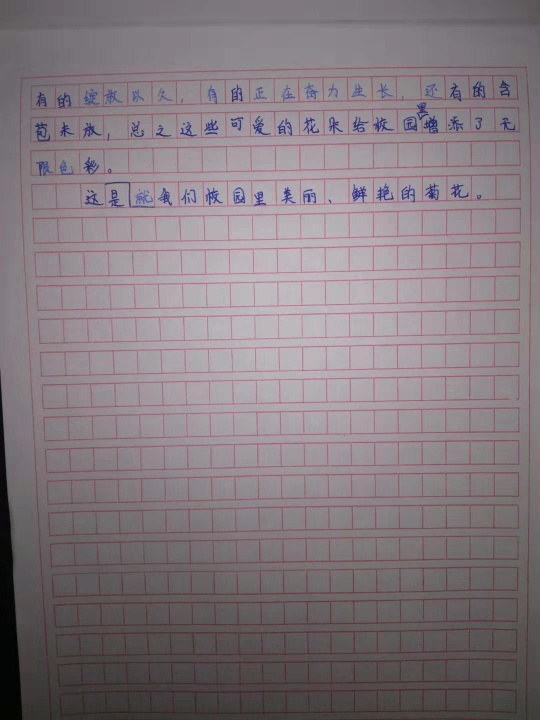 有的绽放以久，有的正在奋力生长，还有的含
苞未放，总之这些可爱的花朵给校园里增添了无
限色彩。
这是就我们校园里美丽、鲜艳的菊花。